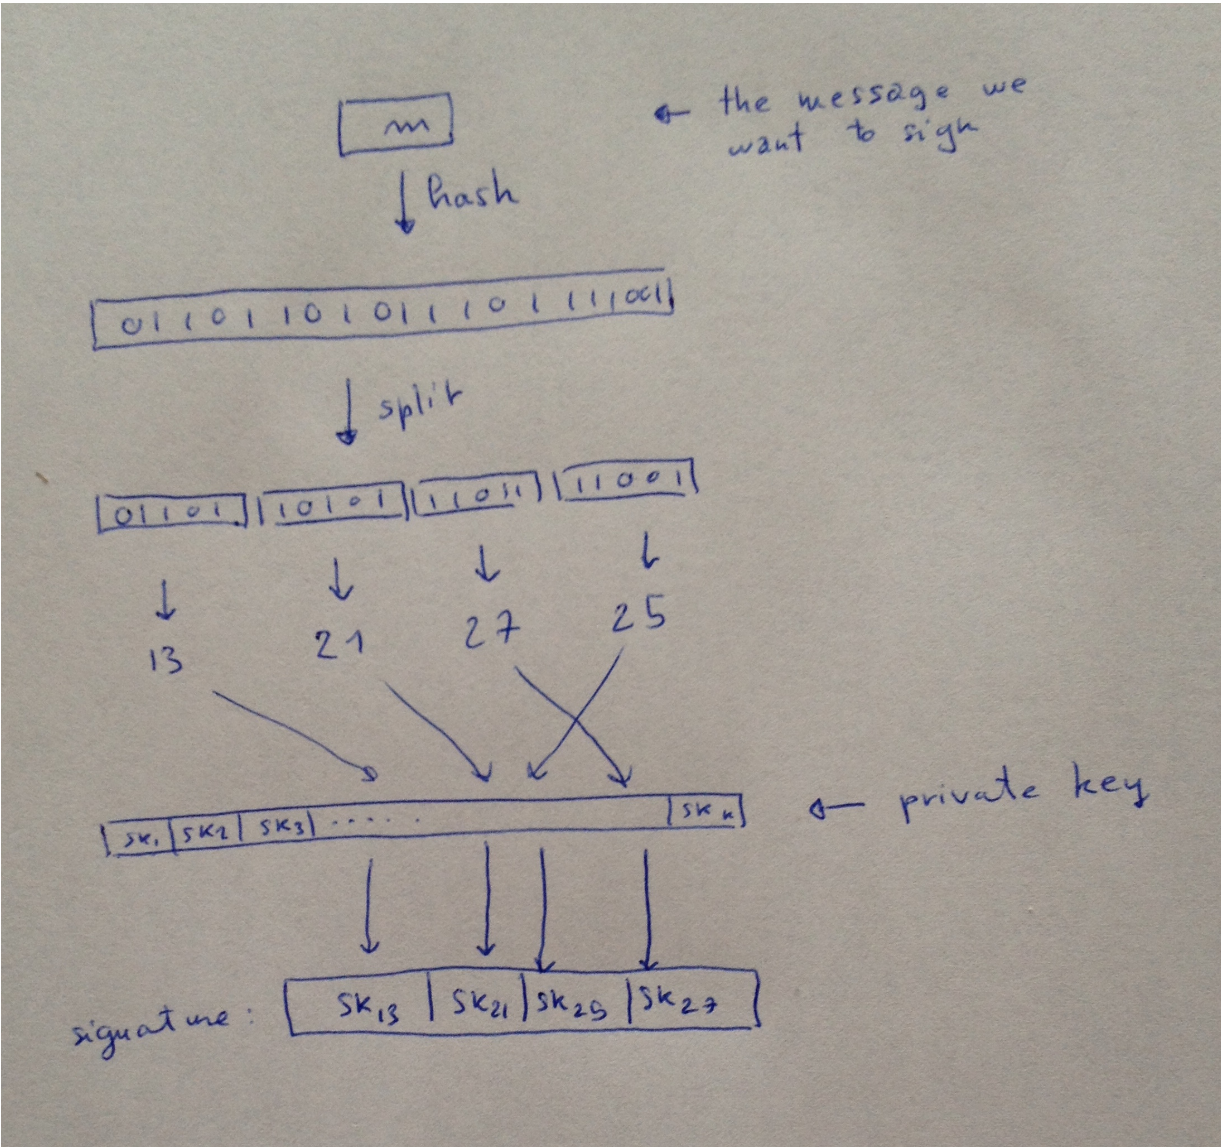 m
← the message we
want to sign
↓ hash
01101101011101111001
↓ split
01101 10101 11011 11001
↓ ↓ ↓ ↓
13 21 27 25
sk1 sk2 sk3 ...... skn ← private key
signature: sk13 sk21 sk25 sk27